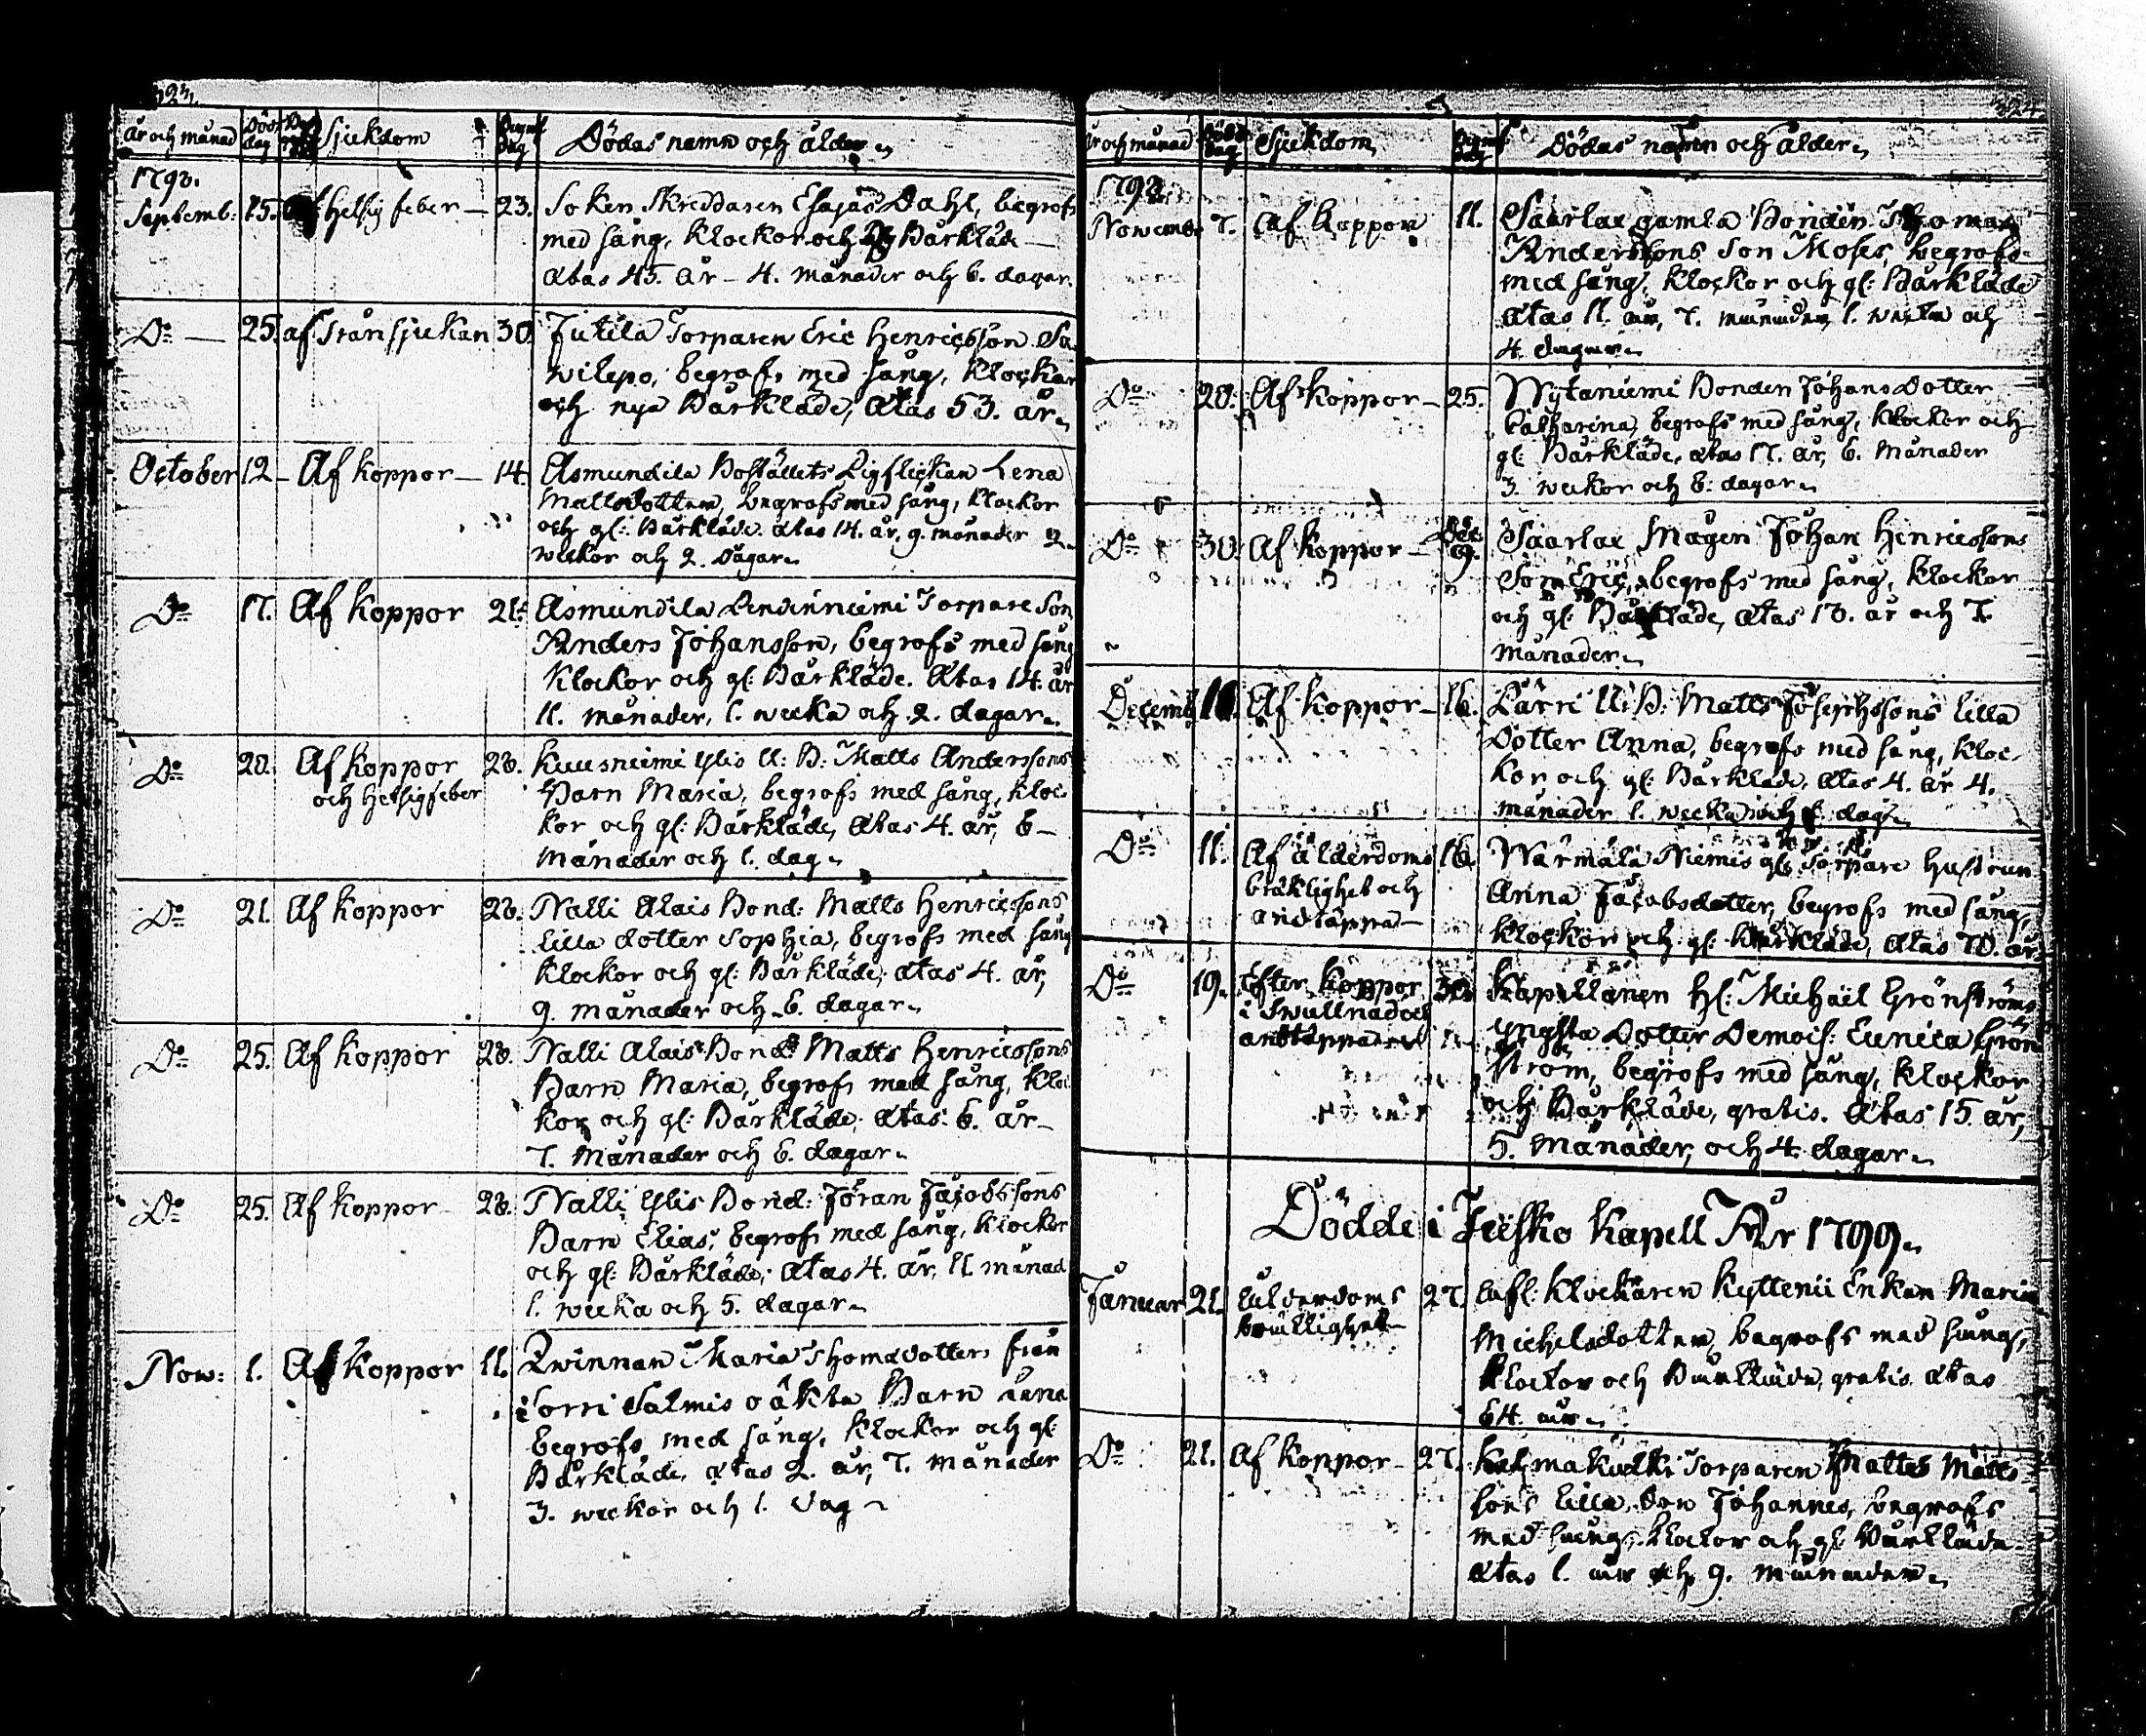 323.
År och månad Död dag Sjukdom Begrafn dag Dödas namn och ålder
1798.
Septemb: 15. Af Hetsig feber — 23. Soken Skreddaren Esajas Dahl, begrofs
med sång, klockor och Bårkläde —
Ætas 45. år — 4. månader och 6. dagar.
Do — 25. af Trånsjukan 30. Jutila Torparen Eric Henricsson Sa-
wilepo, begrafs med sång, klockor
och nya Bårkläde, Ætas 53. år
October 12 — Af koppor — 14. Asmundila Boställets Pigflickan Lena
Mattsdotter, begrofs med sång, klockor
och gl: Bårkläde. Ætas 14. år, 9. månader 2
weckor och 2. dagar
Do 17. Af koppor 21. Asmundila Lendinniemi Torpare Son
Anders Johansson, begrofs med sång
klockor och gl: Bårkläde. Ætas 14. år
11. månader, 1. wecka och 2. dagar
Do 20. Af koppor 28. Kuusniemi Ylis U: B: Matts Anderssons
och Hetsig feber Barn Maria, begrofs med sång, kloc-
kor och gl: Bårkläde, Ætas 4. år, 6 —
månader och 1. dag
Do 21. Af koppor 28. Nalli Alais Bond: Matts Henricssons
lilla dotter Sophia, begrofs med sång
klockor och gl: Bårkläde, Ætas 4. år,
9. månader och 6. dagar
Do 25. Af koppor 28. Nalli Alais Bond: Matts Henricssons
Barn Maria, begrofs med sång, kloc-
kor och gl: Bårkläde, Ætas. 6. år —
7. Månader och 6. dagar
Do 25. Af koppor 28. Nalli Ylis Bond: Jöran Jacobssons
Barn Elias, begrofs med sång, klockor
och gl: Bårkläde, Ætas 4. år, 11. månad
1. wecka och 5. dagar
Now: 1. Af koppor 11. Qwinnan Maria Thomadotters från
Sorri Salmis oäkta Barn Lena
begrofs med sång, klockor och gl:
Bårkläde, Ætas 2. år, 7. månader
3. weckor och 1. dag
324.
År och månad Död dag Sjukdom Begrafn dag Dödas namn och ålder
1798.
Nowemb: 7. Af koppor 11. Saarlax gamla Bonden Thomas
Anderssons Son Moses, begrofs
med sång, klockor och gl: Bårkläde
Ætas 11. år, 7. månader, 1. wecka och
4. dagar
Do 20. Af koppor — 25. Wytaniemi Bonden Johans Dotter
Catharina, begrofs med sång, klockor och
gl: Bårkläde, Ætas 17. år, 6. Månader
3. weckor och 6. dagar
Do 30. Af koppor — Dec: 9. Saarlax Mågen Johan Henricssons
Son Eric, begrofs med sång, klockor
och gl: Bårkläde, Ætas 13. år och 7.
månader
Decemb 10. Af koppor — 16. Lärri U: B: Matts Josephssons lilla
Dotter Anna, begrofs med sång, kloc-
kor och gl: Bårkläde, Ætas 4. år 4.
månader 1. wecka och 1. dag
Do 11. Af ålderdoms 16. Warmala Niemis gl: Torpare hustrun
bräklighet och Anna Jacobsdotter, begrofs med sång,
andtäppa — klockor och gl: Bårkläde, Ætas 70. år
Do 19. Efter koppor 30. Kapellanen H: Michaël Grönströms
i Swullnad och yngsta Dotter Demois: Eunica Grön
andtäppa ström, begrofs med sång, klockor
och Bårkläde, gratis. Ætas 15. år,
5. Månader, och 4. dagar
Dödde i Kapell År 1799
Januar 21. Ålderdoms 27. Afl: Klockaren Kyttenii Enkan Maria
bräklighet Michelsdotter, begrofs med sång,
klockor och Bårkläde, gratis. Ætas
64. år
Do 21. Af koppor — 27. Torparen Matts Matts
sons lilla Son Johannes, begrofs
med sång, klockor och gl: Bårkläde
Ætas 1. år och 9. månader